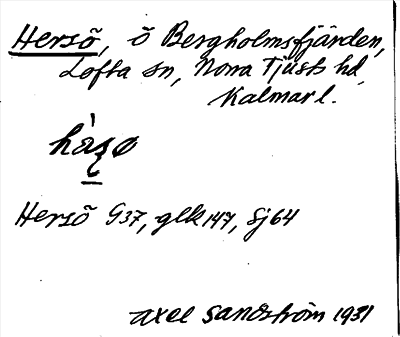 Hersö, ö Bergholmsfjärden,
Lofta sn, Norra Tjusts hd,
Kalmar l.
hàʂø
Hersö G37, glk 147, Sj 64
Axel Sandström 1931